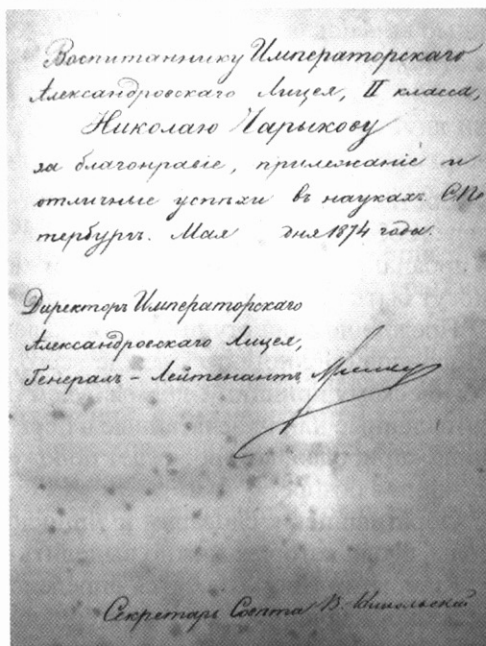 Воспитаннику Императорскаго
Александровскаго Лицея, II класса,
Николаю Чарыкову
за благонравіе, прилежаніе и
отличные успѣхи въ наукахъ. СПе
тербургъ. Мая дня 1874 года.
Директоръ Императорскаго
Александровскаго Лицея,
Генералъ-Лейтенантъ
Секретарь Совѣта В.